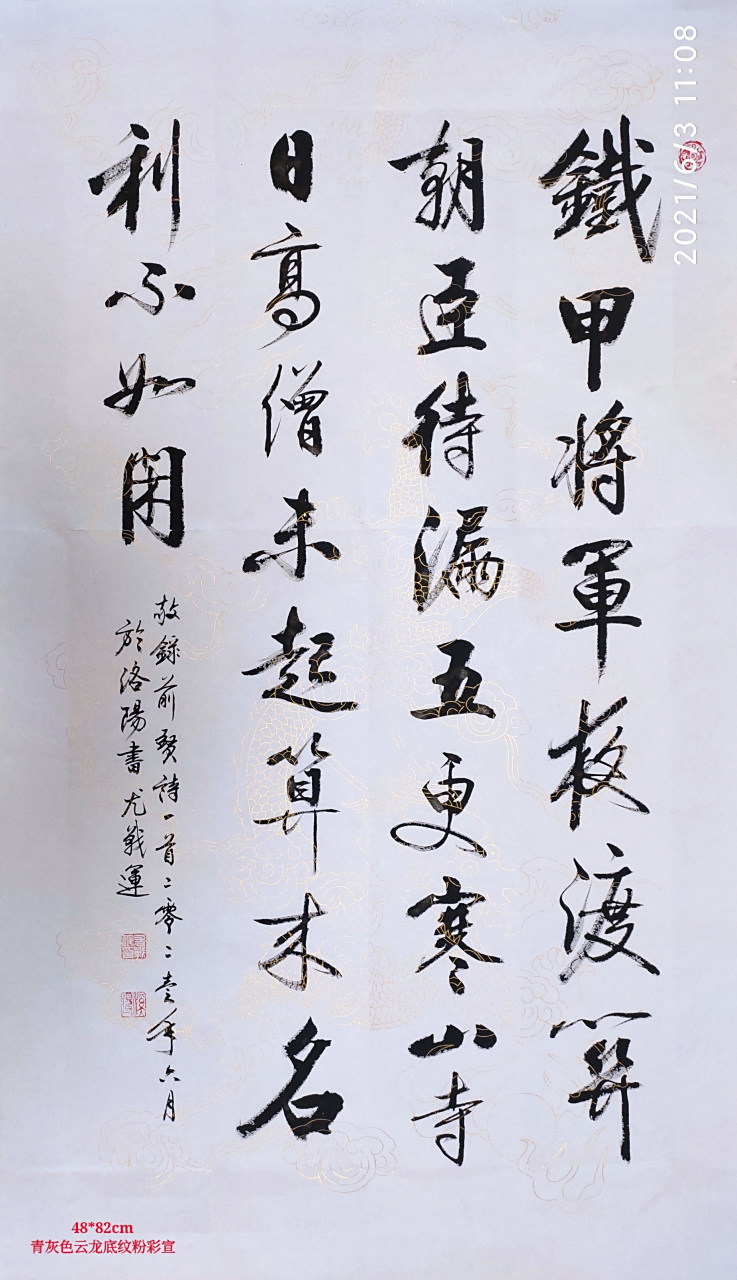 鐵甲将軍夜渡關
朝臣待漏五更寒山寺
日高僧未起算来名
利不如閑
敬錄前賢詩一首二零二壹年六月
於洛陽書尤戰運
2021/6/3 11:08
48*82cm
青灰色云龙底纹粉彩宣